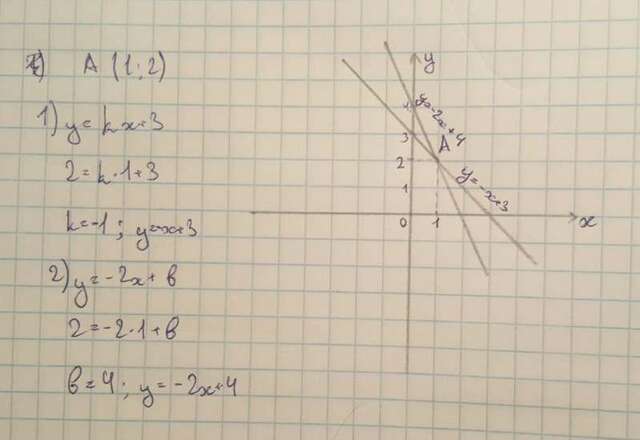 A (1; 2)
1) y = kx+3
2 = k·1+3
k=-1; y=-x+3
2) y = -2x + b
2 = -2·1+b
b = 4; y = -2x+4
y
y=-2x+4
4
3
A
2
y=-x+3
1
0
1
x